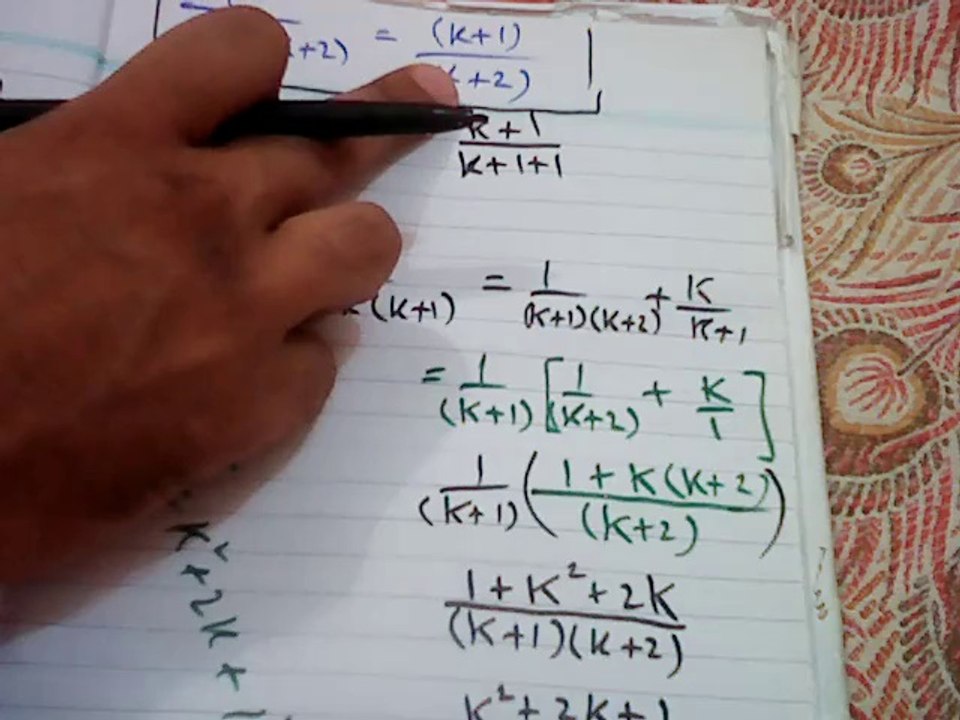 +2) = (k+1)
+2)
k+1
k+1+1
(k+1) = 1/(k+1)(k+2) + k/k+1
= 1/(k+1) [1/(k+2) + k/1]
1/(k+1) (1+k(k+2)/(k+2))
1+k²+2k
(k+1)(k+2)
k²+2k+1
k²+2k+1